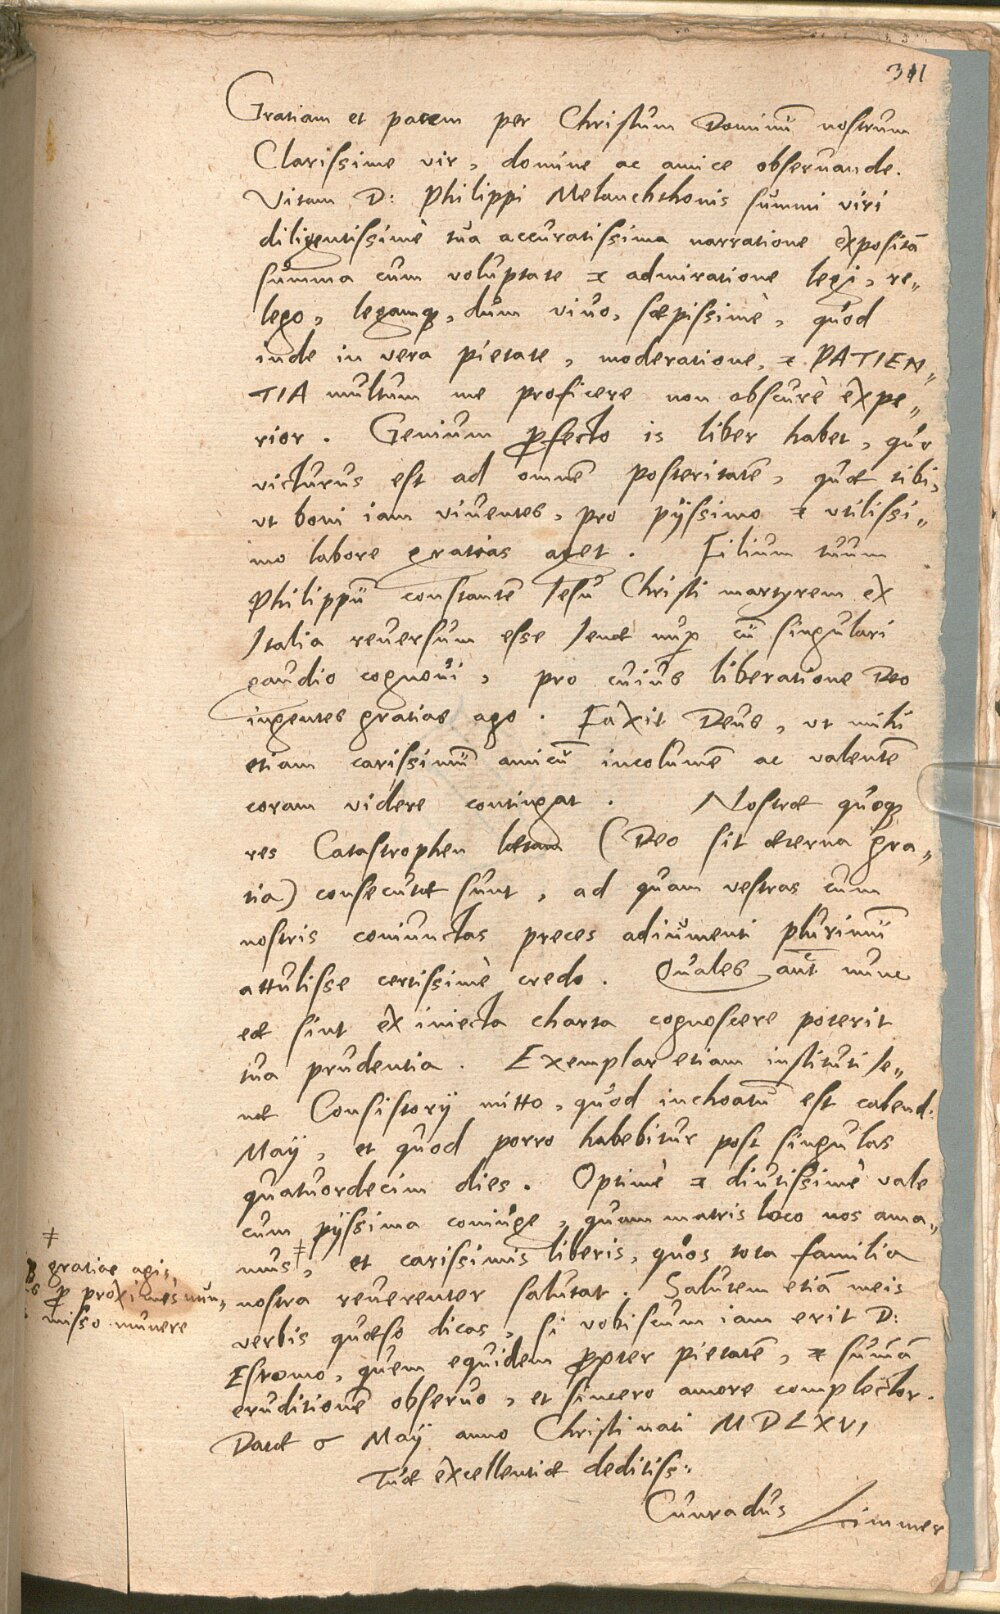 311
Gratiam et pacem per Christum Dominū nostrum
Clarissime vir, domine ac amice obseruande.
Vitam D: Philippi Melanchthonis summi viri
diligentissimè tua accuratissima narratione expositā
summa cum voluptate & admiratione legi, re„
lego, legamq, dum viuo, sæpissimè, quod
inde in vera pietate, moderatione, & PATIEN„
TIA multum me proficere non obscurè expe„
rior. Genium pfecto is liber habet, quo
victurus est ad omnē posteritatē, quæ tibi,
vt boni iam viuentes, pro pijssimo & vtilissi„
mo labore gratias aget. Filium tuum
Philippū constantē Iesu Christi martyrem ex
Italia reuersum esse Ienæ nup cū singulari
gaudio cognoui, pro cuius liberatione Deo
ingentes gratias ago. Faxit Deus, vt mihi
etiam carissimū amicū incolumē ac valentē
coram videre contingat. Nostræ quoq
res Catastrophen lætam (Deo sit æterna gra„
tia) consecutæ sunt, ad quam vestras cum
nostris coniunctas preces adiumenti plurimū
attulisse certissimè credo. Quales aūt nunc
eæ sint ex iniecta charta cognoscere poterit
tua prudentia. Exemplar etiam instituti Ie„
næ Consistorij mitto, quod inchoatū est calend:
Maij, et quod porro habebitur post singulas
quatuordecim dies. Optimè & diutissimè vale
cum pijssima coniuge, quam matris loco nos ama„
mus ‡, et carissimis liberis, quos tota familia
nostra reuerenter salutat. Salutem etiā meis
verbis quæso dicas, si vobiscum iam erit D:
Esromo, quem equidem ppter pietatē, & sumā
eruditionē obseruo, et sincero amore complector.
Datæ 6 Maij anno Christi nati MDLXVI
Tuæ excellentiæ deditiss:
Cunradus Zimmer
‡
gratias agis,
p proximes mun„
misso munere